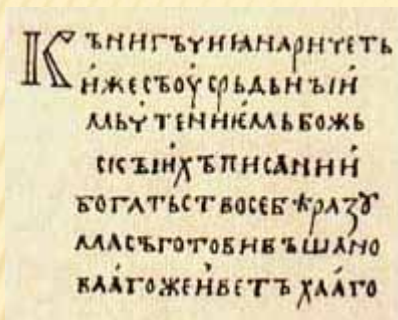 КЪНИГЪЧИꙖНАРИЧЕТЬ
И҆ЖЕСЪОУ҆СРЬДЬНЪІИ҆
МЬЧТЕНИѤ҆МЬБОЖЬ
СКЪІИХЪПИСАНИИ҆
БОГАТЬСТВОСЕБѢРАЗꙊ
МАСЪГОТОВИВЪША
КААГОЖЕИ҆ВЕТЪХААГО